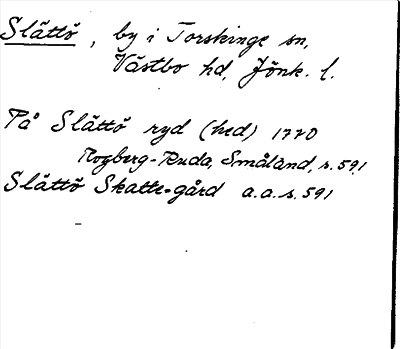 Slättö, by i Torskinge sn,
Västbo hd, Jönk. l.
På Slättö ryd (hed) 1770
Rogberg-Ruda, Småland, s. 591
Slättö Skatte-gård a.a.s. 591